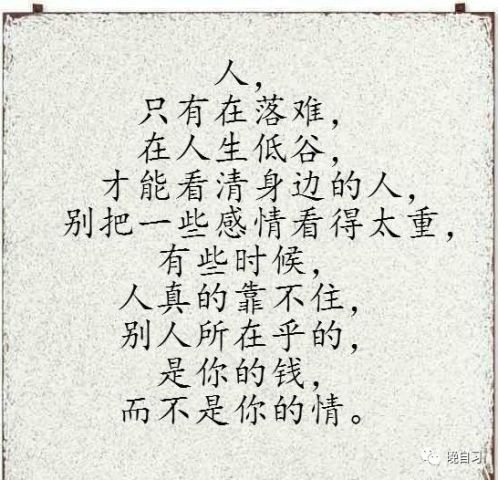 人，
只有在落难，
在人生低谷，
才能看清身边的人，
别把一些感情看得太重，
有些时候，
人真的靠不住，
别人所在乎的，
是你的钱，
而不是你的情。
晚自习